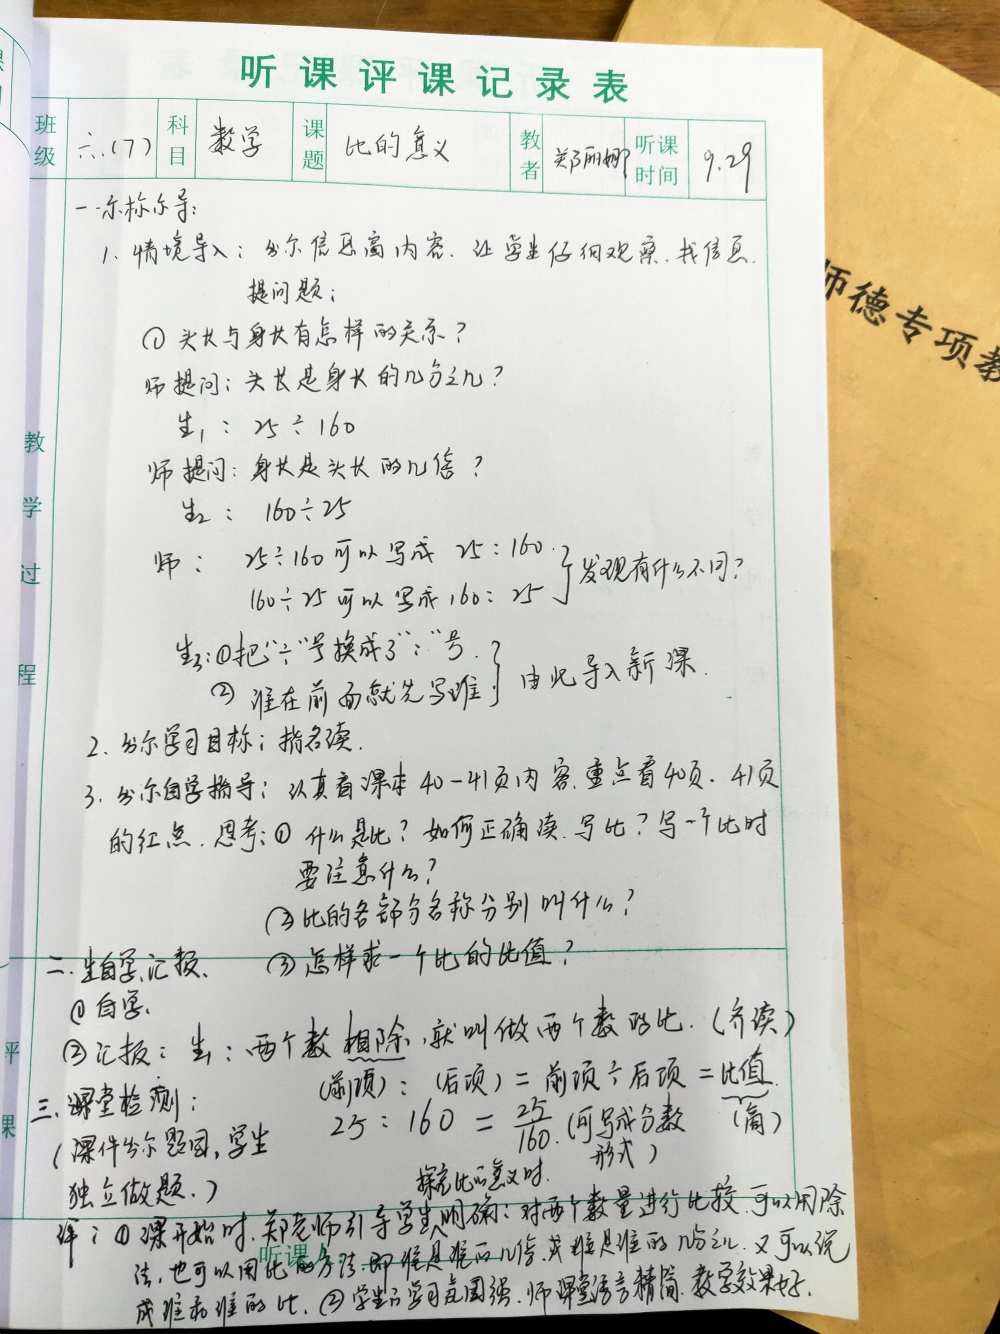 听课评课记录表
班级 六.(7) 科目 数学 课题 比的意义 教者 郑丽娜 听课时间 9.29
一.示标导:
1. 情境导入: 出示信息窗内容. 让学生仔细观察. 找信息.
提问题;
① 头长与身长有怎样的关系?
师提问: 头长是身长的几分之几?
生1: 25÷160
师提问: 身长是头长的几倍?
生2: 160÷25
师: 25÷160可以写成 25:160.
160÷25可以写成160:25
发现有什么不同?
生3:①把"÷"号换成了":"号.
② 谁在前面就先写谁.
由此导入新课.
2. 出示学习目标; 指名读.
3. 出示自学指导: 认真看课本40-41页内容.重点看40页. 41页
的红点.思考:① 什么是比? 如何正确读.写比? 写一个比时
要注意什么?
②比的各部分名称分别叫什么?
③怎样求一个比的比值?
二.生自学.汇报.
①自学.
②汇报: 生1: 两个数相除,就叫做两个数的比.(齐读)
(前项): (后项) = 前项÷后项 = 比值.
(商)
25:160 = 25/160.(可写成分数
形式)
三.课堂检测:
(课件出示题目,学生
独立做题.)
探究比的意义时.
评: ①课开始时.郑老师引导学生明确: 对两个数量进行比较.可以用除
法,也可以用比的方法.即谁是谁的几倍.或谁是谁的几分之几.又可以说
成谁和谁的比. ②学生的学习氛围强.师课堂语言精简.教学效果好.
教学过程
评课
听课
师德专项教